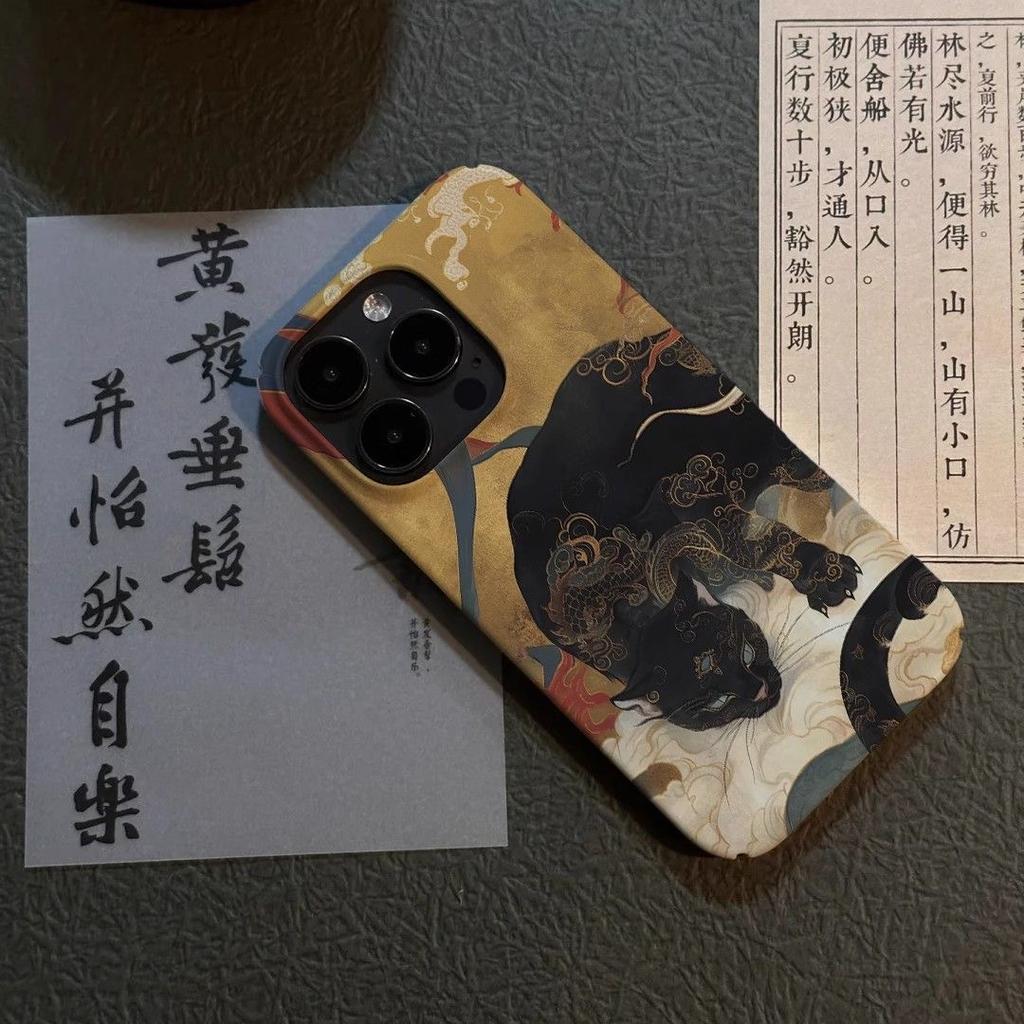 之,复前行,欲穷其林。
林尽水源,便得一山,山有小口,仿
佛若有光。
便舍船,从口入。
初极狭,才通人。
复行数十步,豁然开朗。
黄發垂髫
并怡然自樂
黄发垂髫,
并怡然自乐。